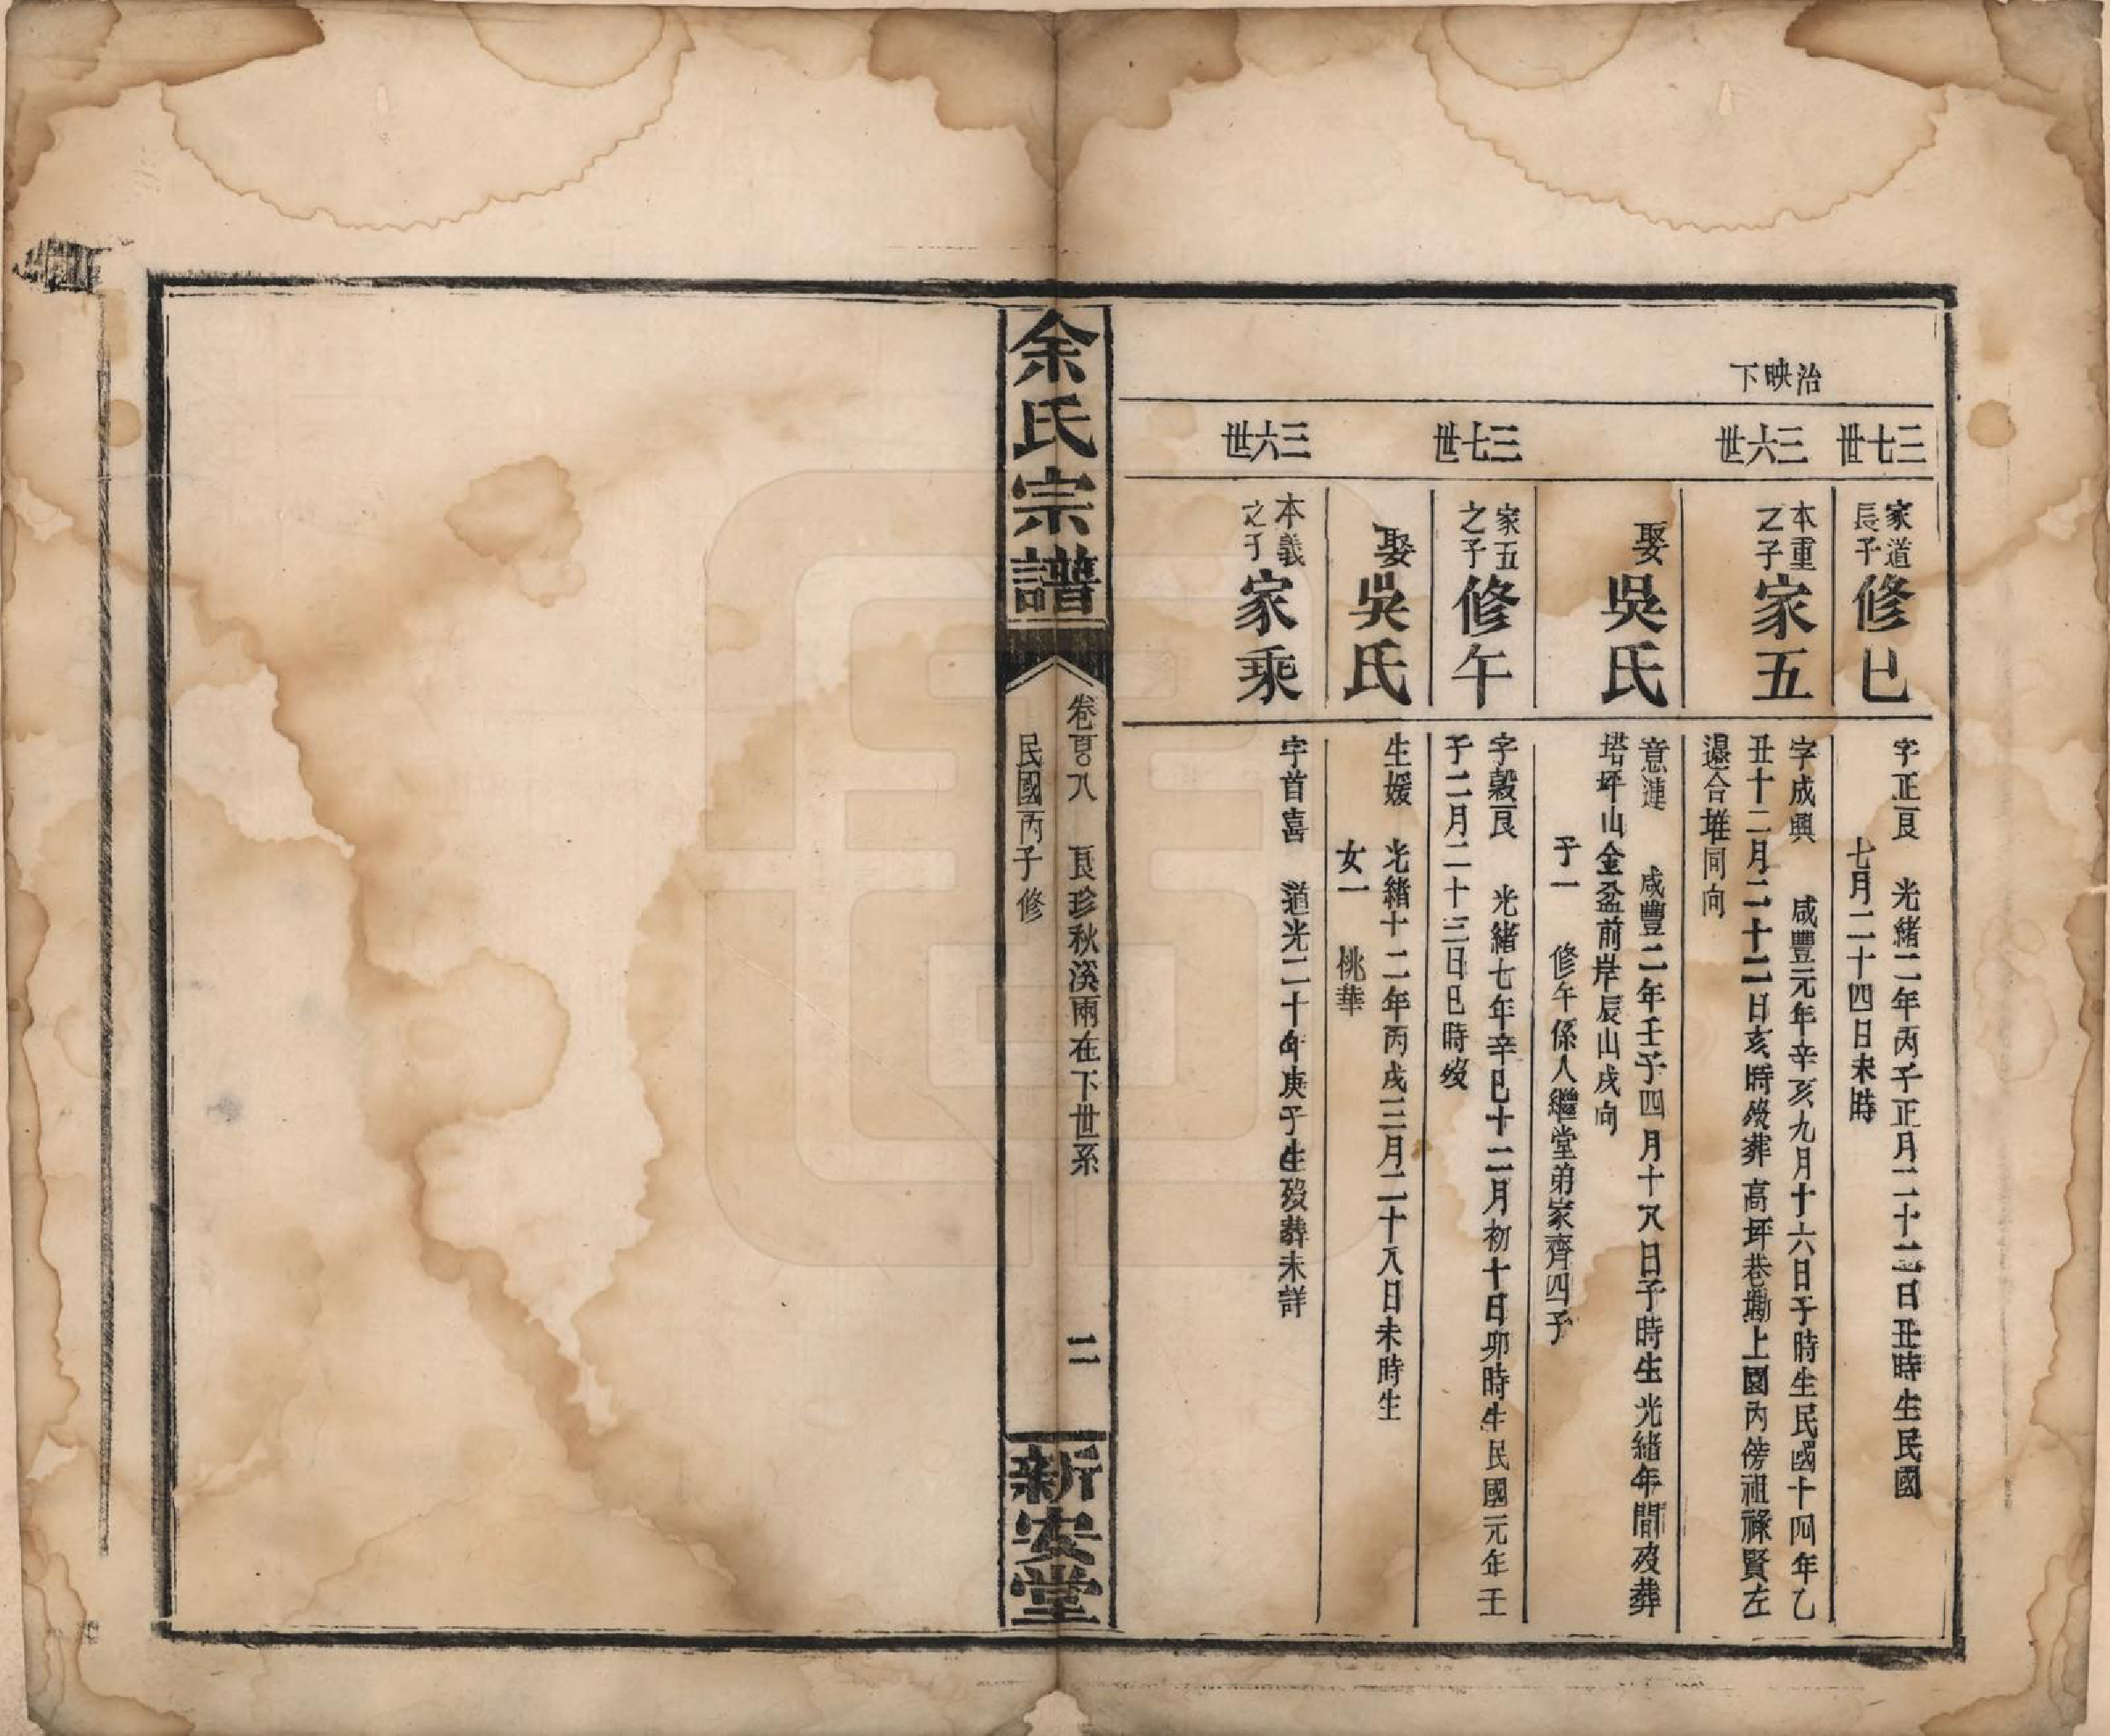 治映下
三七世
家道
長子
修巳
字正良 光緒二年丙子正月二十二日丑時生民國
七月二十四日未時
三六世
本重
之子
家五
字成興 咸豐元年辛亥九月十六日子時生民國十四年乙
丑十二月二十二日亥時歿葬高坪巷墈上園內傍祖祿賢左
邊合堆同向
娶
吳氏
意連 咸豐二年壬子四月十八日子時生光緒年間歿葬
塔坪山金盆前岸辰山戌向
子一 修午係人繼堂弟家齊四子
三七世
家五
之子
修午
字穀良 光緒七年辛巳十二月初十日卯時生民國元年壬
子二月二十三日巳時歿
娶
吳氏
生媛 光緒十二年丙戌三月二十八日未時生
女一 桃華
三六世
本義
之子
家乘
字首喜 道光二十年庚子生歿葬未詳
余氏宗譜
卷百八 良珍秋溪兩在下世系
民國丙子修
二
新安堂